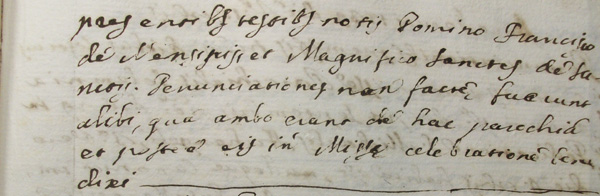 presentibus testibus notis Domino Francisco
de et Magnifico Sanctes de Sa-
nctis. Denunciationes non facte fuerunt
alibi, quia ambo erant de hac parochia
et postea eis in Missę celebratione bene
dixi